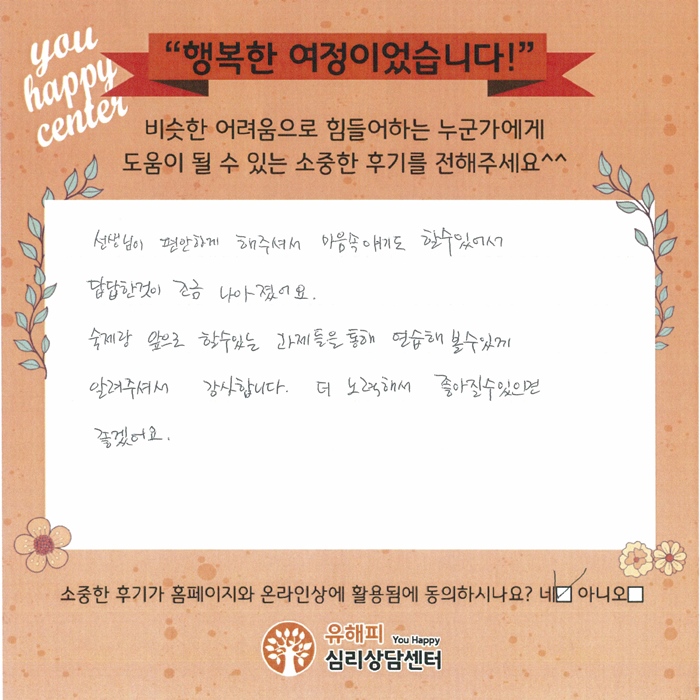 you
happy
center
“행복한 여정이었습니다!”
비슷한 어려움으로 힘들어하는 누군가에게
도움이 될 수 있는 소중한 후기를 전해주세요^^
선생님이 편안하게 해주셔서 마음속얘기도 할수있어서
답답한것이 조금 나아졌어요.
숙제랑 앞으로 할수있는 과제들을통해 연습해볼수있게
알려주셔서 감사합니다. 더 노력해서 좋아질수있으면
좋겠어요.
소중한 후기가 홈페이지와 온라인상에 활용됨에 동의하시나요? 네 아니오
유해피 You Happy
심리상담센터